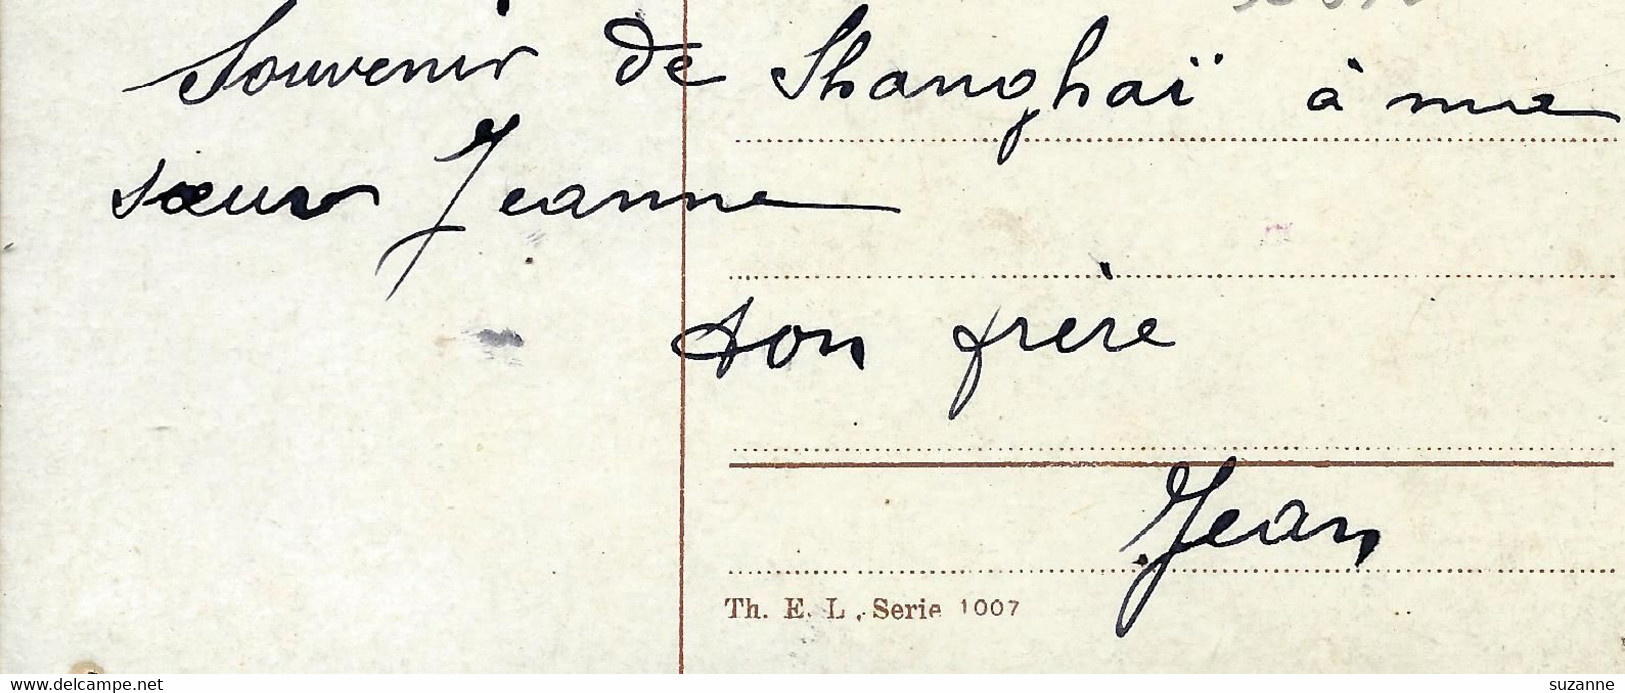 Souvenir de Shanghaï à me
sœur Jeanne
son frère
Jean
Th. E. L. Serie 1007
www.delcampe.net
suzanne